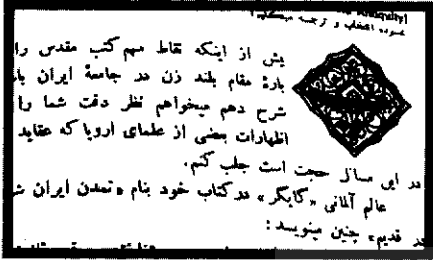 نموده انتخاب و ترجمه میکنیم
پیش از اینکه نقاط مهم کتب مقدس را
بارهٔ مقام بلند زن در جامعهٔ ایران
شرح دهم میخواهم نظر دقت شما را
اظهارات بعضی از علمای اروپا که عقاید
در این مسائل حجت است جلب کنم.
عالم آلمانی «گایگر» در کتاب خود بنام «تمدن ایران
قدیم» چنین مینویسد: